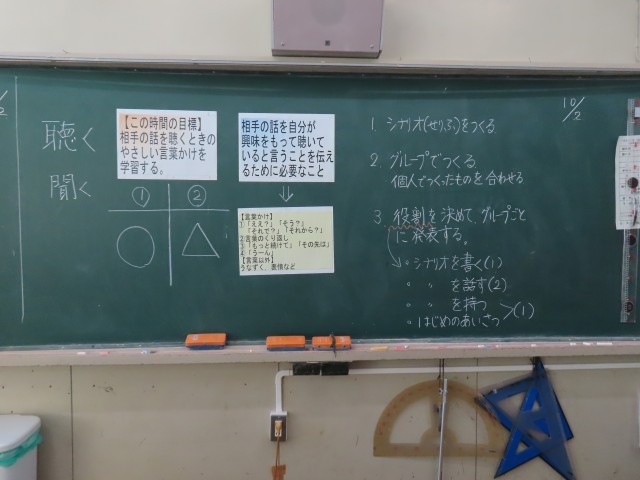 聴く
聞く
【この時間の目標】
相手の話を聴くときの
やさしい言葉かけを
学習する。
① ②
相手の話を自分が
興味をもって聴いて
いると言うことを伝え
るために必要なこと
⇓
【言葉かけ】
1「ええ？」「そう？」
「それで？」「それから？」
2言葉のくり返し
3「もっと続けて」「その先は」
4「うーん」
【言葉以外】
うなずく、表情など
10/2
1. シナリオ(せりふ)をつくる
2. グループでつくる
個人でつくったものを合わせる
3. 役割を決めて、グループごと
に発表する。
・シナリオを書く(1)
・ 〃 を話す(2)
・ 〃 を持つ
・はじめのあいさつ >(1)